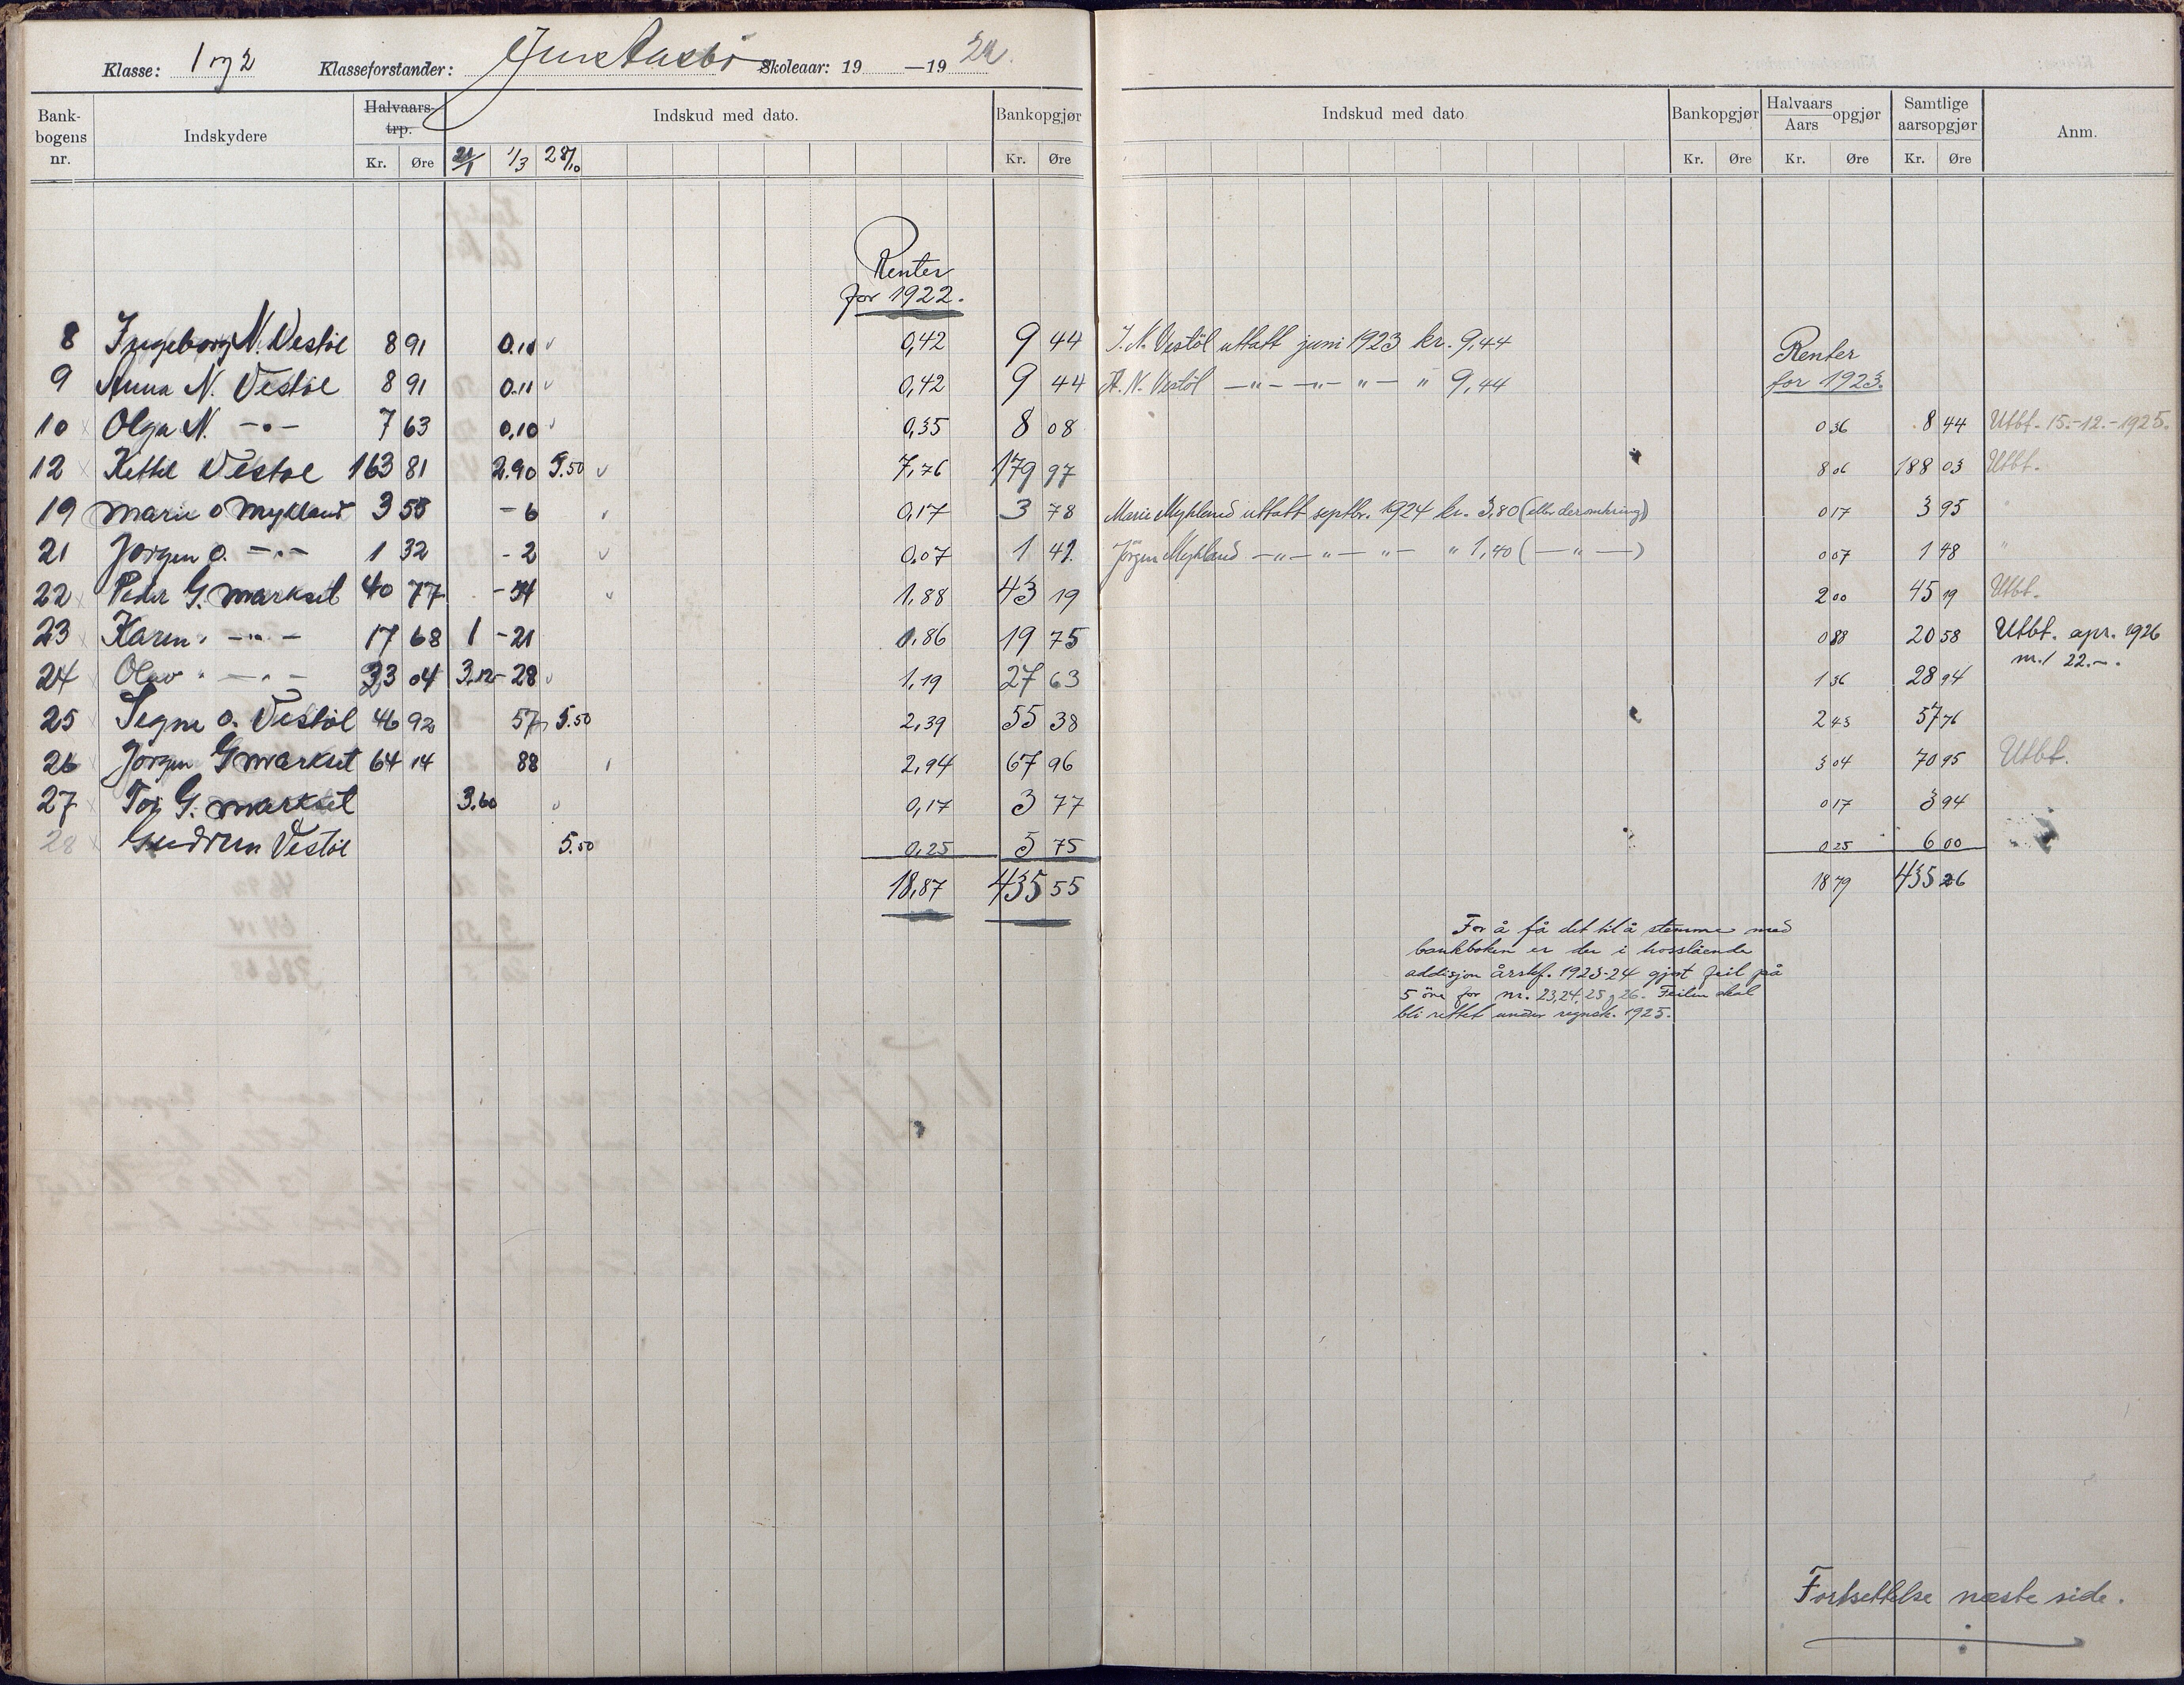 Klasse: 1 og 2 Klasseforstander: Jens Aasbø Skoleaar: 19 —19 22.
Bank-bogens nr. Indskydere Halvaars-trp. Kr. Øre Indskud med dato. 1/3 28/10 Bankopgjør Kr. Øre
Renter
for 1922.
8 Ingeborg N. Vestøl 8 91 0.11 0,42 9 44
9 Anna N. Vestøl 8 91 0.11 0,42 9 44
10 Olga N. —"— 7 63 0.10 0,35 8 08
12 Kettil Vestøl 163 81 2.90 5.50 7,76 179 97
19 Marie O Mykland 3 55 - 6 0,17 3 78
21 Jørgen O. —"— 1 32 - 2 0,07 1 41
22 Peder G. Markset 40 77 - 54 1,88 43 19
23 Karen " —"— 17 68 1 - 21 0,86 19 75
24 Olav " —"— 23 04 3.12 - 28 1,19 27 63
25 Signe O. Vestøl 46 92 57 5.50 2,39 55 38
26 Jørgen G Markset 64 14 88 2,94 67 96
27 Toj G. Markset 3.60 0,17 3 77
28 Gudrun Vestøl 5.50 0,25 5 75
18,87 435 55
Indskud med dato Bankopgjør Kr. Øre Halvaars Aars opgjør Kr. Øre Samtlige aarsopgjør Kr. Øre Anm.
I. N. Vestöl uttatt juni 1923 kr. 9,44
Renter
A. N. Vestöl —"— —"— "— " 9,44
for 1923.
0 36 8 44 Utbt. 15.-12.-1925.
8 06 188 03 Utbt.
Marie Mykland uttatt septbr. 1924 kr. 3,80 (eller deromkring) 0 17 3 95 "
Jörgen Mykland —"— "— "— " 1,40 (—"—) 0 07 1 48 "
2 00 45 19 Utbt.
0 88 20 58 Utbt. apr. 1926
m./ 22.-.
1 36 28 94
2 43 57 76
3 04 70 95 Utbt.
0 17 3 94
0 25 6 00
18 79 435 26
For å få det til å stemme med
bankboken er der i hosstående
addisjon årsskf. 1923-24 gjort feil på
5 öre for nr. 23, 24, 25 g 26. Feilen skal
bli rettet under regnsk. 1925.
Fortsettelse næste side.